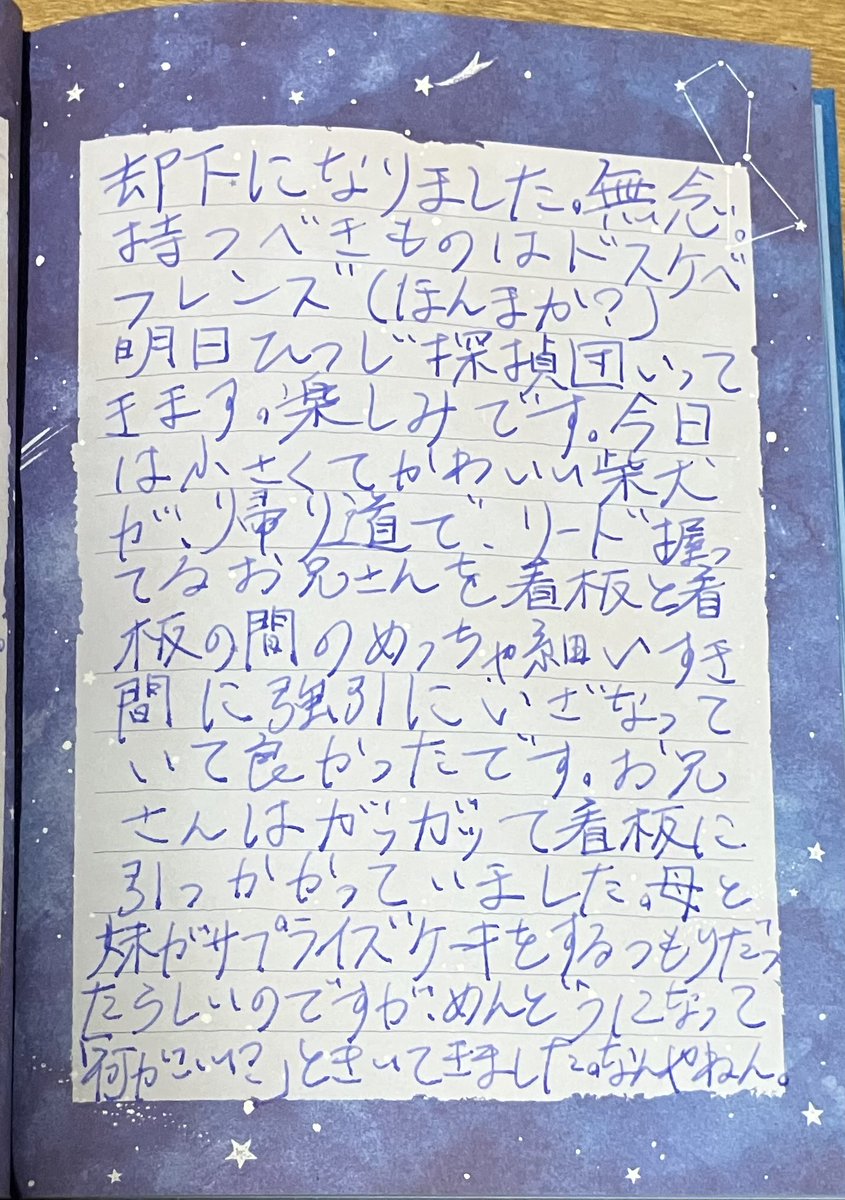 却下になりました。無念。
持つべきものはドスケベ
フレンズ(ほんまか?)
明日ひつじ探偵団いって
きます。楽しみです。今日
は小さくてかわいい柴犬
が、帰り道で、リード握っ
てるお兄さんを看板と看
板の間のめっちゃ細いすき
間に強引にいざなって
いて良かったです。お兄
さんはガッガッて看板に
引っかかっていました。母と
妹がサプライズケーキをするつもりだっ
たらしいのですが、めんどうになって
「何がいい?」ときいてきました。なんやねん。